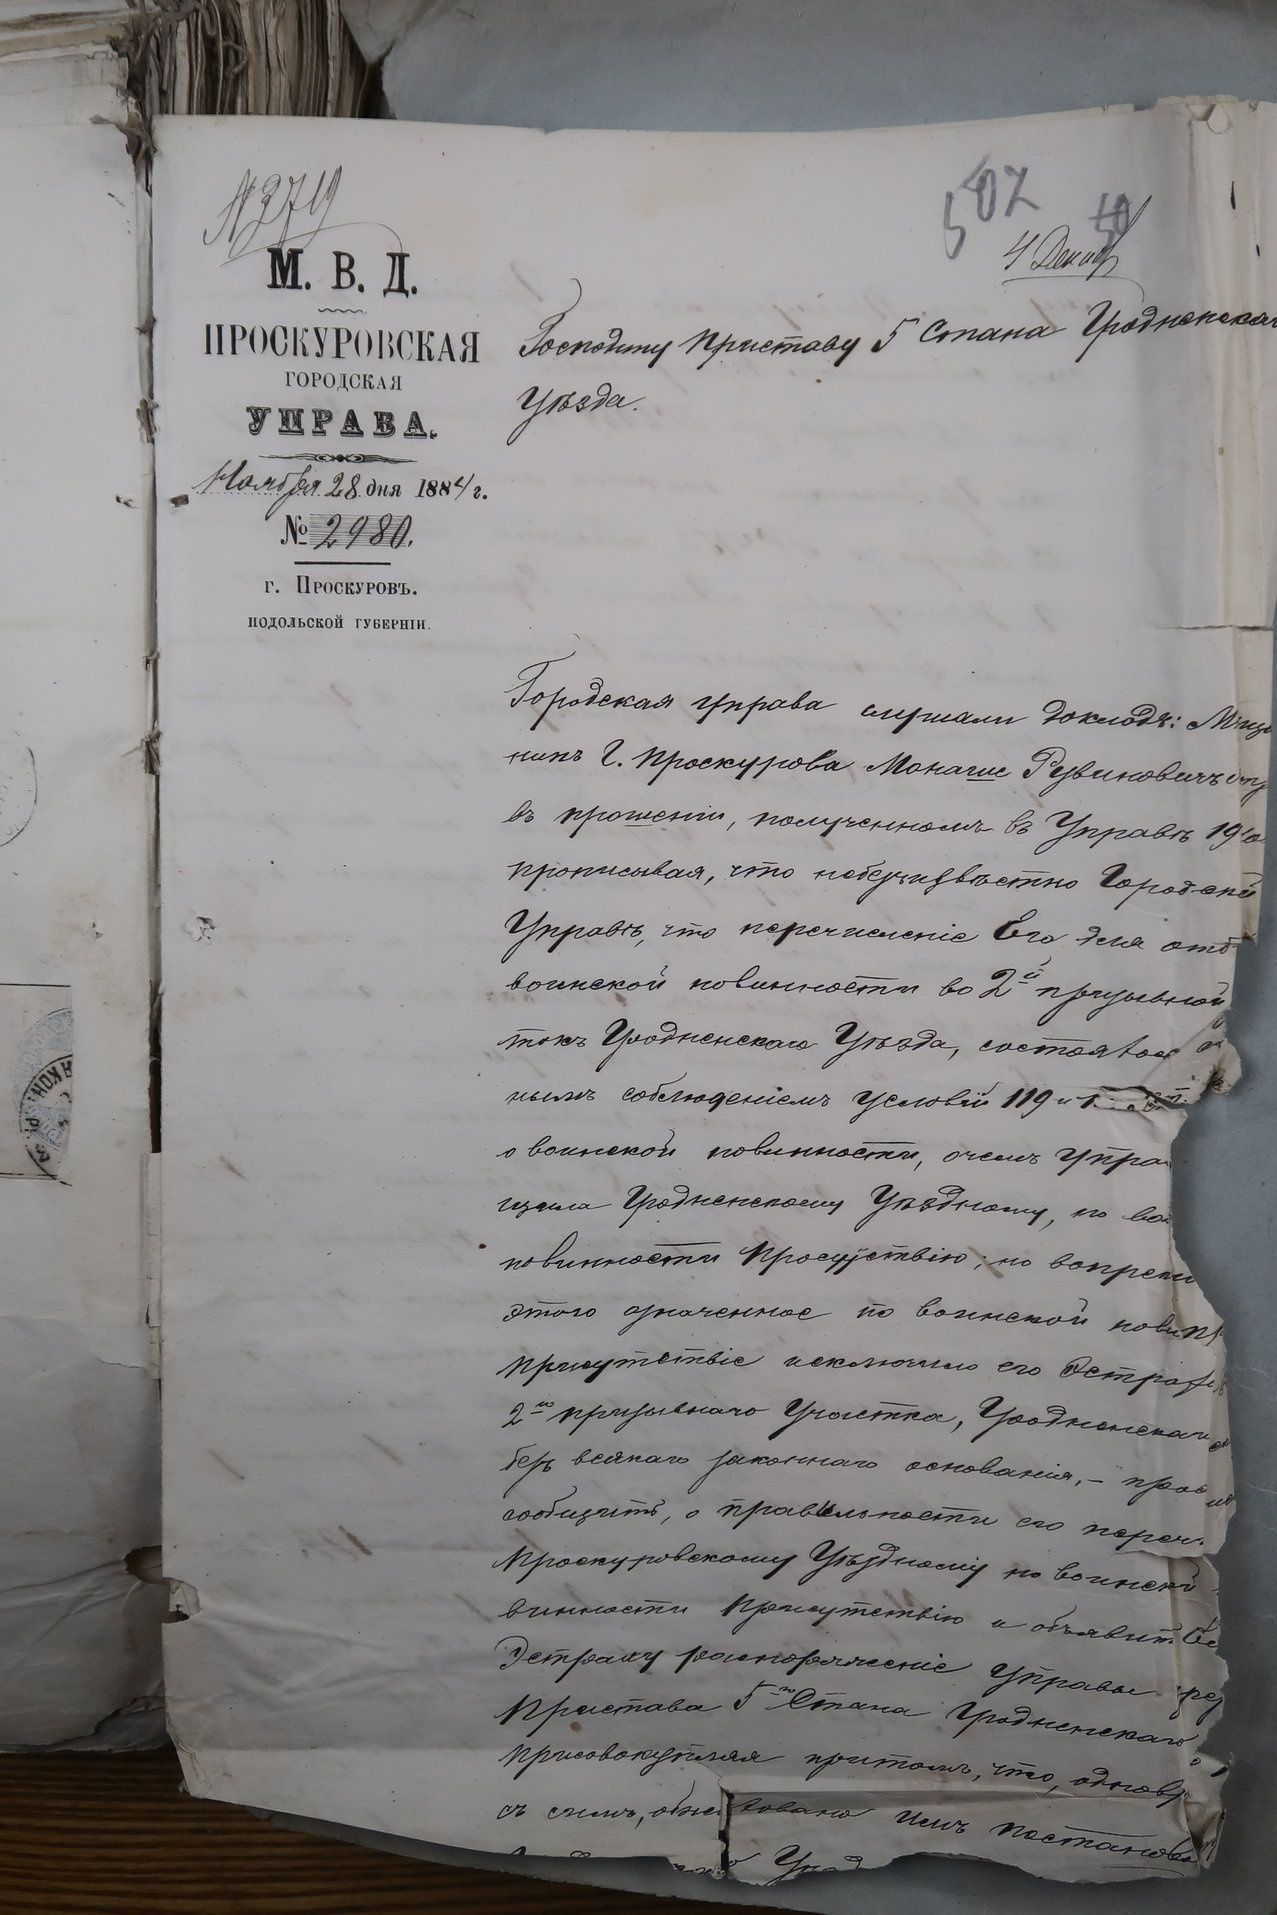 № 2719
502
50
4 Декаб
М. В. Д.
ПРОСКУРОВСКАЯ
ГОРОДСКАЯ
УПРАВА.
Ноября 28 дня 1884 г.
№ 2980.
г. Проскуровъ.
ПОДОЛЬСКОЙ ГУБЕРНІИ.
Господину Приставу 5 Стана Гродненскаг
Уѣзда.
Городская управа слушали докладъ: Мѣща
нинъ Г. Проскурова Монашс Рувиновичъ
въ прошеніи, полученномъ въ Управѣ 19
прописывая, что небезъизвѣстно Городской
Управѣ, что перечисленіе Его для отб
воинской повинности во 2й призывной
токъ Гродненскаго Уѣзда, состоялос
нымъ соблюденіемъ условій 119 и 1
о воинской повинности, очемъ Упра
щила Гродненскому Уѣздному, по во
повинности Присутствію; но вопреки
этого означенное по воинской пови
присутствіе исключило его Эстра
2го призывнаго Участка, Гродненскаг
безъ всякаго законнаго основанія, – прос
сообщить, о правильности его переч
Проскуровскому Уѣздному по воинской
винности Присутствію и объявить Е
Эстраху распоряженіе Управы
Пристава 5го Стана Гродненскаго
присовокупляя притомъ, что, однов
съ симъ, обж овано имъ постановл
КОН